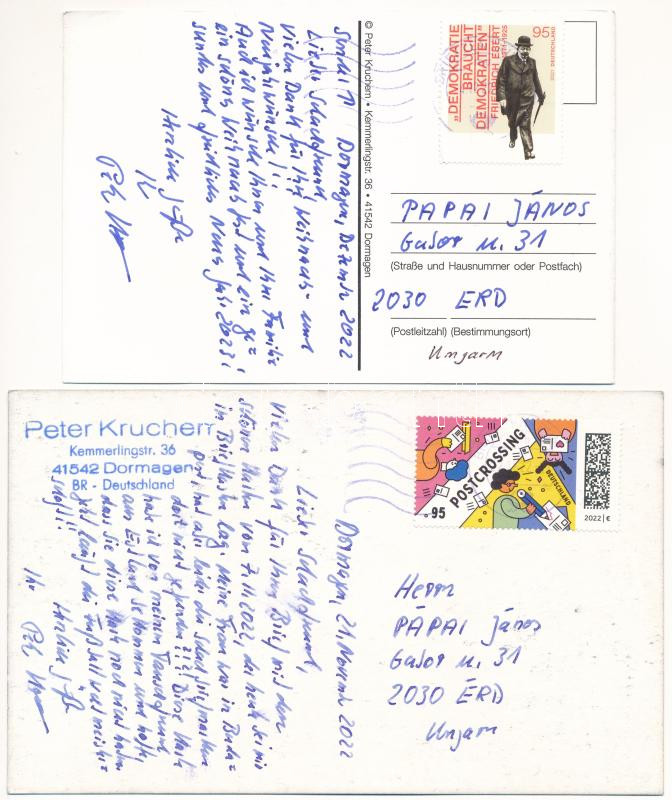 Dormagen, Dezember 2022
Lieber Schachfreund
Vielen Dank für Ihre Weihnachts- und
Neujahrswünsche!!
Auch ich wünsche Ihnen und Ihrer Familie
ein schönes Weihnachtsfest und ein ge-
sundes und glückliches Neues Jahr 2023!
Herzliche Grüße
Ihr
© Peter Kruchem • Kemmerlingstr. 36 • 41542 Dormagen
95
DEUTSCHLAND
2021
„DEMOKRATIE
BRAUCHT
DEMOKRATEN“
FRIEDRICH EBERT
1871–1925
PAPAI JÁNOS
Gabor u. 31
(Straße und Hausnummer oder Postfach)
2030 ERD
(Postleitzahl) (Bestimmungsort)
Ungarn
Peter Kruchem
Kemmerlingstr. 36
41542 Dormagen
BR - Deutschland
Dormagen, 21. November 2022
Lieber Schachfreund,
Vielen Dank für Ihren Brief mit der
schönen Karte von 7.11.2022, die heute bei mir
im Briefkasten lag. Meine Frau war in Buda-
pest und hat leider die Schachbriefmarken
dort nicht gefunden!!! Diese Karte
habe ich von meinem
aus Estland bekommen und hoffe,
dass Sie diese Karte noch nicht haben.
Herzliche Grüße
Ihr
POSTCROSSING
95
DEUTSCHLAND
2022 | €
Herrn
PÁPAI János
Gabor u. 31
2030 ÉRD
Ungarn